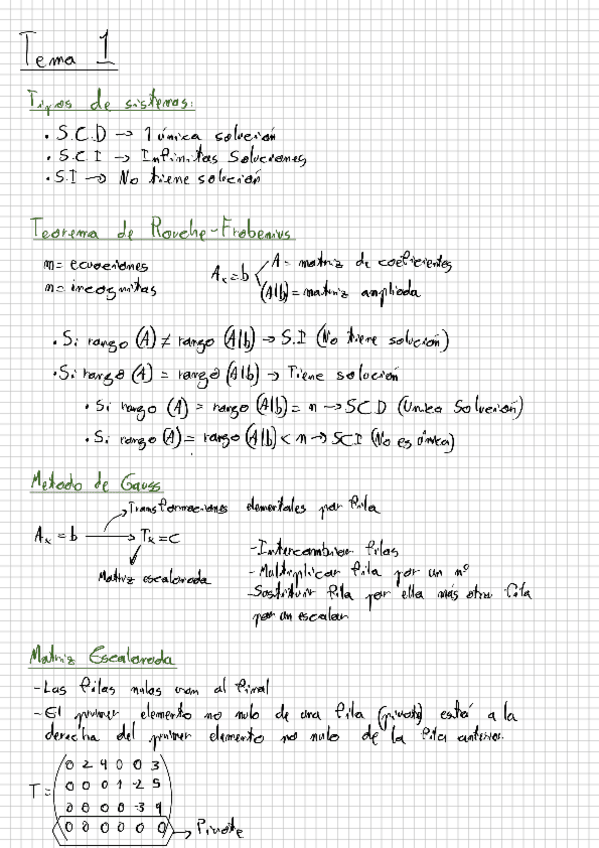 Tema 1
Tipos de sistemas:
• S.C.D → 1 única solución
• S.C.I → Infinitas Soluciones
• S.I → No tiene solución
Teorema de Rouche-Frobenius
m = ecuaciones
n = incognitas
Ax = b
A = matriz de coeficientes
(A|b) = matriz ampliada
• Si rango (A) ≠ rango (A|b) → S.I (No tiene solución)
• Si rango (A) = rango (A|b) → Tiene solución
• Si rango (A) = rango (A|b) = n → SCD (Unica Solución)
• Si rango (A) = rango (A|b) < n → SCI (No es única)
Metodo de Gauss
Transformaciones elementales por fila
Ax = b → Tx = c
Matriz escalonada
- Intercambiar filas
- Multiplicar fila por un nº
- Sostituir fila por ella más otra fila
por un escalar
Matriz Escalonada
- Las filas nulas van al final
- El primer elemento no nulo de una fila (pivote) está a la
derecha del primer elemento no nulo de la fila anterior.
0 2 4 0 0 3
T = 0 0 0 1 -2 5
0 0 0 0 -3 4
0 0 0 0 0 0 → Pivote